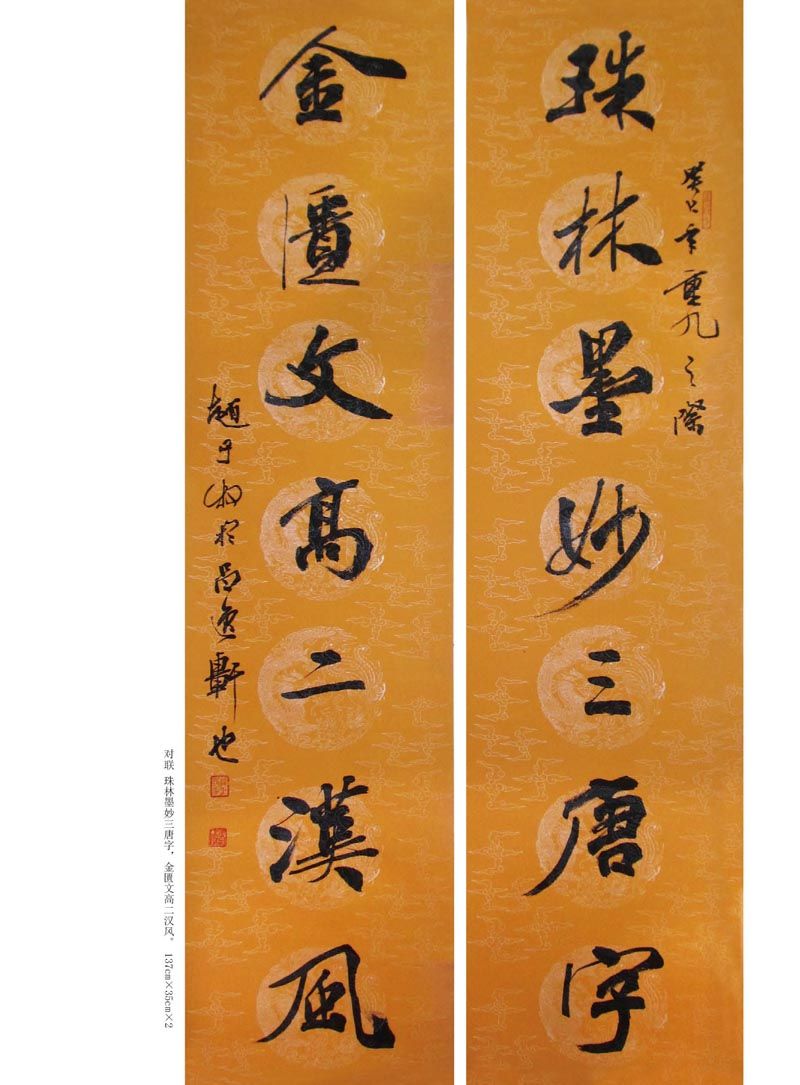 珠林墨妙三唐字
癸巳年重九之際
金匱文高二漢風
趙於逸軒也
对联 珠林墨妙三唐字，金匮文高二汉风。 137cm×35cm×2